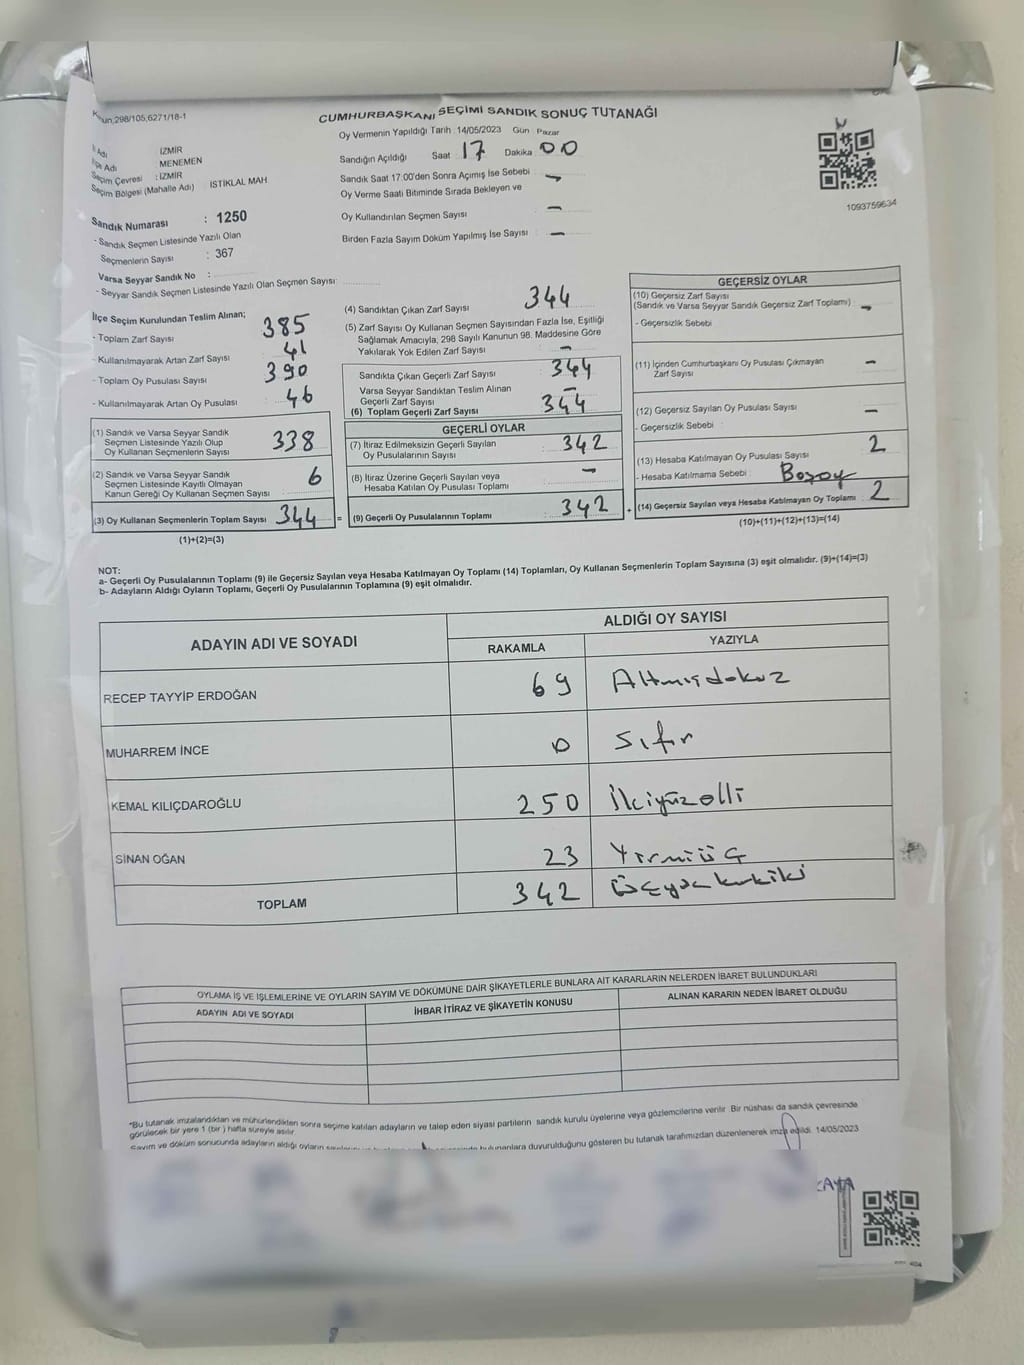 Kanun;298/105,6271/18-1
CUMHURBAŞKANI SEÇİMİ SANDIK SONUÇ TUTANAĞI
Oy Vermenin Yapıldığı Tarih :14/05/2023 Gün : Pazar
İl Adı : İZMİR
İlçe Adı : MENEMEN
Seçim Çevresi : İZMİR
Seçim Bölgesi (Mahalle Adı) : İSTİKLAL MAH
Sandığın Açıldığı Saat 17 Dakika 00
Sandık Saat 17:00'den Sonra Açımış İse Sebebi : -
Oy Verme Saati Bitiminde Sırada Bekleyen ve
Oy Kullandırılan Seçmen Sayısı : -
Birden Fazla Sayım Döküm Yapılmış İse Sayısı : -
1093759634
Sandık Numarası : 1250
- Sandık Seçmen Listesinde Yazılı Olan
Seçmenlerin Sayısı : 367
Varsa Seyyar Sandık No :
- Seyyar Sandık Seçmen Listesinde Yazılı Olan Seçmen Sayısı:
İlçe Seçim Kurulundan Teslim Alınan;
- Toplam Zarf Sayısı : 385
- Kullanılmayarak Artan Zarf Sayısı : 41
- Toplam Oy Pusulası Sayısı : 390
- Kullanılmayarak Artan Oy Pusulası : 46
(1) Sandık ve Varsa Seyyar Sandık
Seçmen Listesinde Yazılı Olup
Oy Kullanan Seçmenlerin Sayısı : 338
(2) Sandık ve Varsa Seyyar Sandık
Seçmen Listesinde Kayıtlı Olmayan
Kanun Gereği Oy Kullanan Seçmen Sayısı : 6
(3) Oy Kullanan Seçmenlerin Toplam Sayısı : 344 =
(1)+(2)=(3)
(4) Sandıktan Çıkan Zarf Sayısı : 344
(5) Zarf Sayısı Oy Kullanan Seçmen Sayısından Fazla İse, Eşitliği
Sağlamak Amacıyla; 298 Sayılı Kanunun 98. Maddesine Göre
Yakılarak Yok Edilen Zarf Sayısı : -
Sandıkta Çıkan Geçerli Zarf Sayısı : 344
Varsa Seyyar Sandıktan Teslim Alınan
Geçerli Zarf Sayısı : -
(6) Toplam Geçerli Zarf Sayısı : 344
GEÇERLİ OYLAR
(7) İtiraz Edilmeksizin Geçerli Sayılan
Oy Pusulalarının Sayısı : 342
(8) İtiraz Üzerine Geçerli Sayılan veya
Hesaba Katılan Oy Pusulası Toplamı : -
(9) Geçerli Oy Pusulalarının Toplamı : 342 +
GEÇERSİZ OYLAR
(10) Geçersiz Zarf Sayısı
(Sandık ve Varsa Seyyar Sandık Geçersiz Zarf Toplamı) : -
- Geçersizlik Sebebi :
(11) İçinden Cumhurbaşkanı Oy Pusulası Çıkmayan
Zarf Sayısı : -
(12) Geçersiz Sayılan Oy Pusulası Sayısı : -
- Geçersizlik Sebebi :
(13) Hesaba Katılmayan Oy Pusulası Sayısı : 2
- Hesaba Katılmama Sebebi : Boşoy
(14) Geçersiz Sayılan veya Hesaba Katılmayan Oy Toplamı : 2
(10)+(11)+(12)+(13)=(14)
NOT:
a- Geçerli Oy Pusulalarının Toplamı (9) ile Geçersiz Sayılan veya Hesaba Katılmayan Oy Toplamı (14) Toplamları, Oy Kullanan Seçmenlerin Toplam Sayısına (3) eşit olmalıdır. (9)+(14)=(3)
b- Adayların Aldığı Oyların Toplamı, Geçerli Oy Pusulalarının Toplamına (9) eşit olmalıdır.
ADAYIN ADI VE SOYADI
ALDIĞI OY SAYISI
RAKAMLA YAZIYLA
RECEP TAYYİP ERDOĞAN 69 Altmışdokuz
MUHARREM İNCE 0 Sıfır
KEMAL KILIÇDAROĞLU 250 İkiyüzelli
SİNAN OĞAN 23 Yirmiüç
TOPLAM 342 Üçyüzkırkiki
OYLAMA İŞ VE İŞLEMLERİNE VE OYLARIN SAYIM VE DÖKÜMÜNE DAİR ŞİKAYETLERLE BUNLARA AİT KARARLARIN NELERDEN İBARET BULUNDUKLARI
ADAYIN ADI VE SOYADI İHBAR İTİRAZ VE ŞİKAYETİN KONUSU ALINAN KARARIN NEDEN İBARET OLDUĞU
*Bu tutanak imzalandıktan ve mühürlendikten sonra seçime katılan adayların ve talep eden siyasi partilerin sandık kurulu üyelerine veya gözlemcilerine verilir. Bir nüshası da sandık çevresinde
görülecek bir yere 1 (bir ) hafta süreyle asılır.
Sayım ve döküm sonucunda adayların aldığı oyların bulunanlara duyurulduğunu gösteren bu tutanak tarafımızdan düzenlenerek imza edildi. 14/05/2023